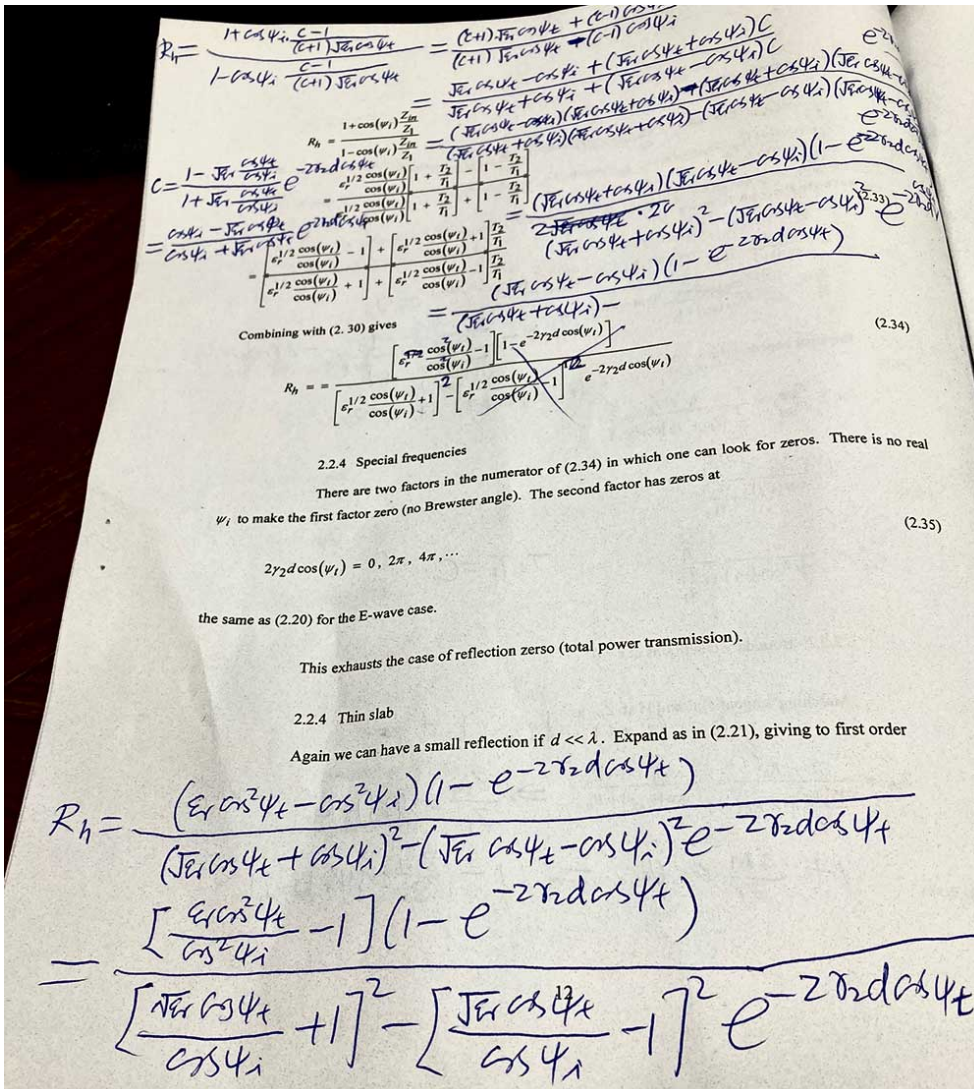 R_h = \frac{1+\cos\psi_i \cdot \frac{C-1}{(C+1)\sqrt{\varepsilon_r}\cos\psi_t}}{1-\cos\psi_i \frac{C-1}{(C+1)\sqrt{\varepsilon_r}\cos\psi_t}} = \frac{(C+1)\sqrt{\varepsilon_r}\cos\psi_t + (C-1)\cos\psi_i}{(C+1)\sqrt{\varepsilon_r}\cos\psi_t - (C-1)\cos\psi_i}
= \frac{\sqrt{\varepsilon_r}\cos\psi_t - \cos\psi_i + (\sqrt{\varepsilon_r}\cos\psi_t + \cos\psi_i)C}{\sqrt{\varepsilon_r}\cos\psi_t + \cos\psi_i + (\sqrt{\varepsilon_r}\cos\psi_t - \cos\psi_i)C}
R_h = \frac{1+\cos(\psi_i)\frac{Z_{in}}{Z_1}}{1-\cos(\psi_i)\frac{Z_{in}}{Z_1}}
C = \frac{1-\sqrt{\varepsilon_r}\frac{\cos\psi_t}{\cos\psi_i}}{1+\sqrt{\varepsilon_r}\frac{\cos\psi_t}{\cos\psi_i}} e^{-2\gamma_2 d\cos\psi_t}
= \frac{\varepsilon_r^{1/2}\frac{\cos(\psi_t)}{\cos(\psi_i)}\left[1+\frac{T_2}{T_1}\right]-\left[1-\frac{T_2}{T_1}\right]}{\varepsilon_r^{1/2}\frac{\cos(\psi_t)}{\cos(\psi_i)}\left[1+\frac{T_2}{T_1}\right]+\left[1-\frac{T_2}{T_1}\right]}
(2.33)
= \frac{\left[\varepsilon_r^{1/2}\frac{\cos(\psi_t)}{\cos(\psi_i)}-1\right]+\left[\varepsilon_r^{1/2}\frac{\cos(\psi_t)}{\cos(\psi_i)}+1\right]\frac{T_2}{T_1}}{\left[\varepsilon_r^{1/2}\frac{\cos(\psi_t)}{\cos(\psi_i)}+1\right]+\left[\varepsilon_r^{1/2}\frac{\cos(\psi_t)}{\cos(\psi_i)}-1\right]\frac{T_2}{T_1}}
= \frac{(\sqrt{\varepsilon_r}\cos\psi_t - \cos\psi_i)(1-e^{-2\gamma_2 d\cos\psi_t})}{(\sqrt{\varepsilon_r}\cos\psi_t + \cos\psi_i) -}
Combining with (2. 30) gives
R_h = = \frac{\left[\varepsilon_r\frac{\cos^2(\psi_t)}{\cos^2(\psi_i)}-1\right]\left[1-e^{-2\gamma_2 d\cos(\psi_t)}\right]}{\left[\varepsilon_r^{1/2}\frac{\cos(\psi_t)}{\cos(\psi_i)}+1\right]^2-\left[\varepsilon_r^{1/2}\frac{\cos(\psi_t)}{\cos(\psi_i)}-1\right]^2 e^{-2\gamma_2 d\cos(\psi_t)}} (2.34)
2.2.4 Special frequencies
There are two factors in the numerator of (2.34) in which one can look for zeros. There is no real
ψ_i to make the first factor zero (no Brewster angle). The second factor has zeros at
2γ_2 d cos(ψ_t) = 0, 2π, 4π, ⋯ (2.35)
the same as (2.20) for the E-wave case.
This exhausts the case of reflection zerso (total power transmission).
2.2.4 Thin slab
Again we can have a small reflection if d << λ. Expand as in (2.21), giving to first order
R_h = \frac{(\varepsilon_r\cos^2\psi_t - \cos^2\psi_i)(1-e^{-2\gamma_2 d\cos\psi_t})}{(\sqrt{\varepsilon_r}\cos\psi_t + \cos\psi_i)^2-(\sqrt{\varepsilon_r}\cos\psi_t - \cos\psi_i)^2 e^{-2\gamma_2 d\cos\psi_t}}
= \frac{\left[\frac{\varepsilon_r\cos^2\psi_t}{\cos^2\psi_i}-1\right](1-e^{-2\gamma_2 d\cos\psi_t})}{\left[\frac{\sqrt{\varepsilon_r}\cos\psi_t}{\cos\psi_i}+1\right]^2-\left[\frac{\sqrt{\varepsilon_r}\cos\psi_t}{\cos\psi_i}-1\right]^2 e^{-2\gamma_2 d\cos\psi_t}}
12